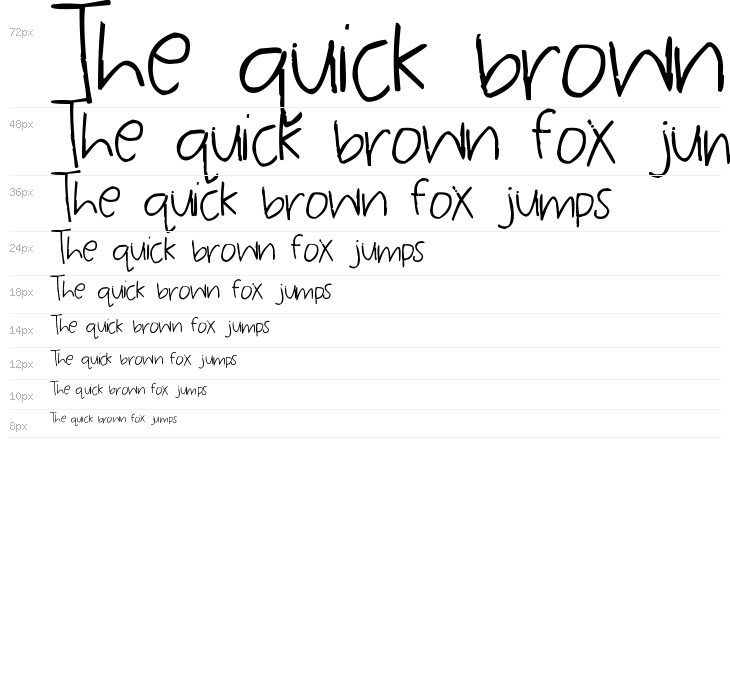 72px The quick brown
48px The quick brown fox jun
36px The quick brown fox jumps
24px The quick brown fox jumps
18px The quick brown fox jumps
14px The quick brown fox jumps
12px The quick brown fox jumps
10px The quick brown fox jumps
8px The quick brown fox jumps